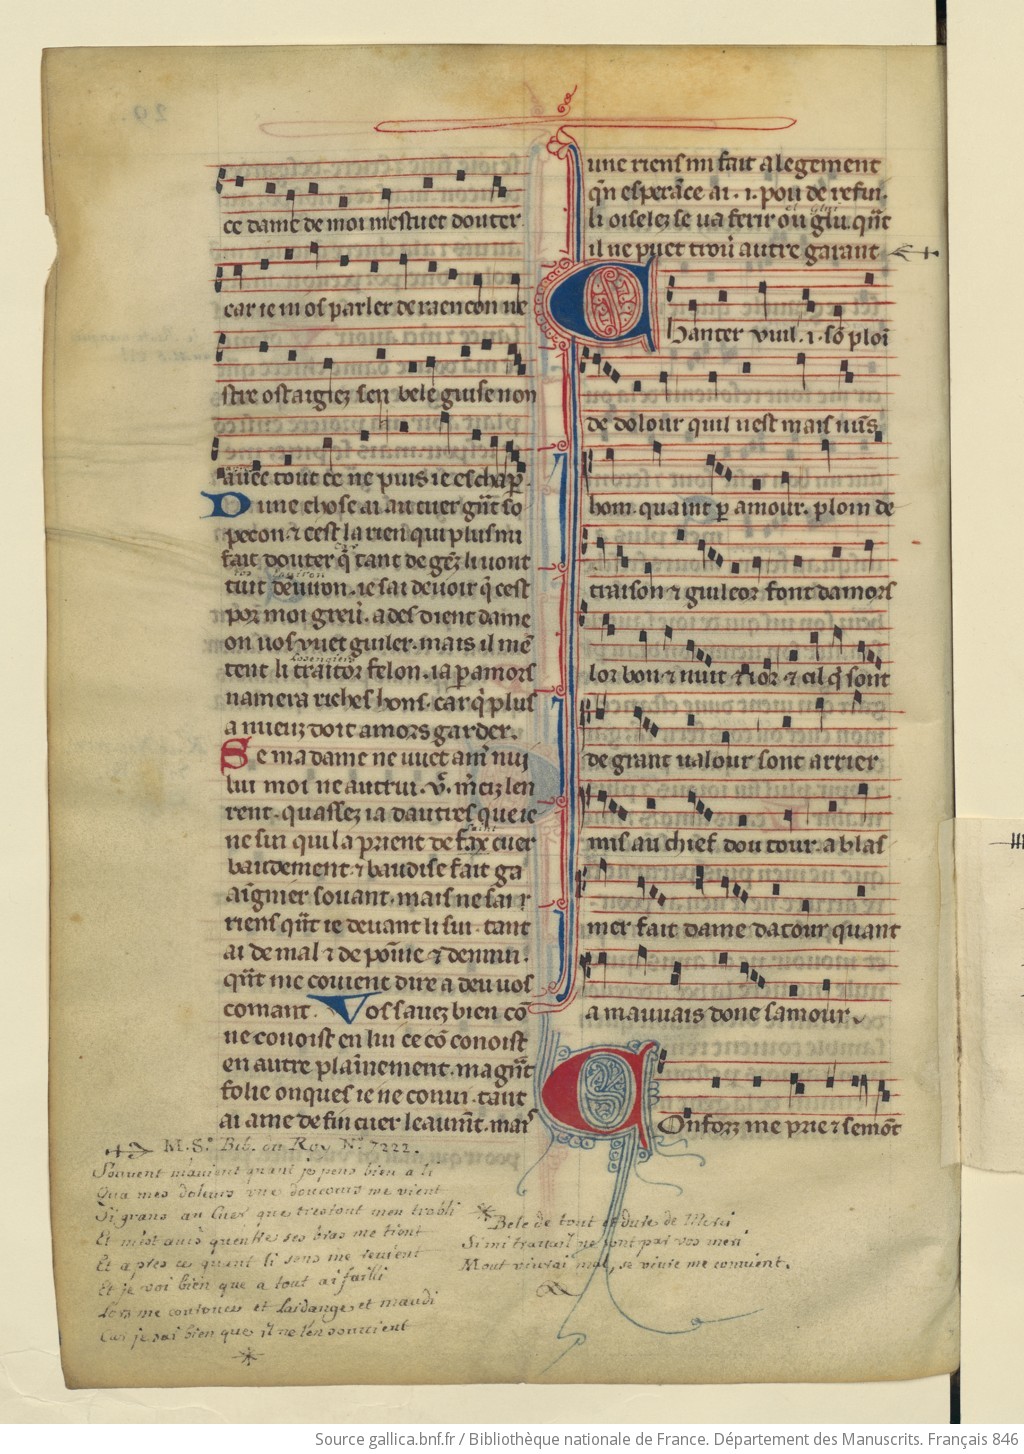 ce dame de moi mestuet douter
car ie m os parler de raencon ne
stre ostaigiez sen bele guise non
auec tout ce ne puis ie eschap.
Dune chose ai au cuer gñt so
pecon ⁊ cest la rien qui plus mi
fait douter q̃ tant de gēz li uont
tuit
ie sai deuoir q̃ cest
por moi greu̾. ades dient dame
on uos vuet guiler. mais il mē
tent li traitor felon. ia p amors
namera riches hons. car q̃ plus
a mieuz doit amors garder.
Se ma dame ne vuet am̃ nuj
lui moi ne autrui. v̾. m̾ciz len
rent. quassez ia dautres que ie
ne sui qui la prient de cuer
baudement. ⁊ baudise fait ga
aignier souant. mais ne sai
riens qñt ie deuant li sui. tant
ai de mal ⁊ de poīne ⁊ dennui.
qñt me couient dire a deu uos
comant. Vos sauez bien cō
ne conoist en lui ce cō conoist
en autre plainement. ma gñt
folie onques ie ne conui. tant
ai ame de fin cuer leaum̃t. mais
une riens mi fait alegement
qn̄ esperāce ai. i. pou de refui.
li oiselez se ua ferir ou glu. qñt
il ne puet trou̾ autre garant
Chanter vuil. i. sō ploi
de dolour quil nest mais nūs
hom. quaint p amour. ploin de
traison ⁊ guileor font damors
lor bon ⁊ nuit ⁊ ior. ⁊ cil q̃ sont
de grant ualour sont arrier
mis au chief dou tour. a blas
mer fait dame datour quant
a mauuais done samour.
Conforz me prie ⁊ semōt
M.S.t Bib. du Roy N.o 7222.
Souvent m'avient quant je pens bien a li
Qua mes dolours une doucours me vient
Si grans au Cuer que trestout men troubli
Et m'est avis quentre ses bras me tient
Et apres ce quant li sens me revient
Et je voi bien que a tout ai failli
Lors me courouce et laidange et maudi
Car je sai bien que il ne l'en souvient
Bele de tout et dure de Merci
Si mi travail ne sont par vos meri
Mout vivrai mal, se vivre me convient.
Source gallica.bnf.fr / Bibliothèque nationale de France. Département des Manuscrits. Français 846